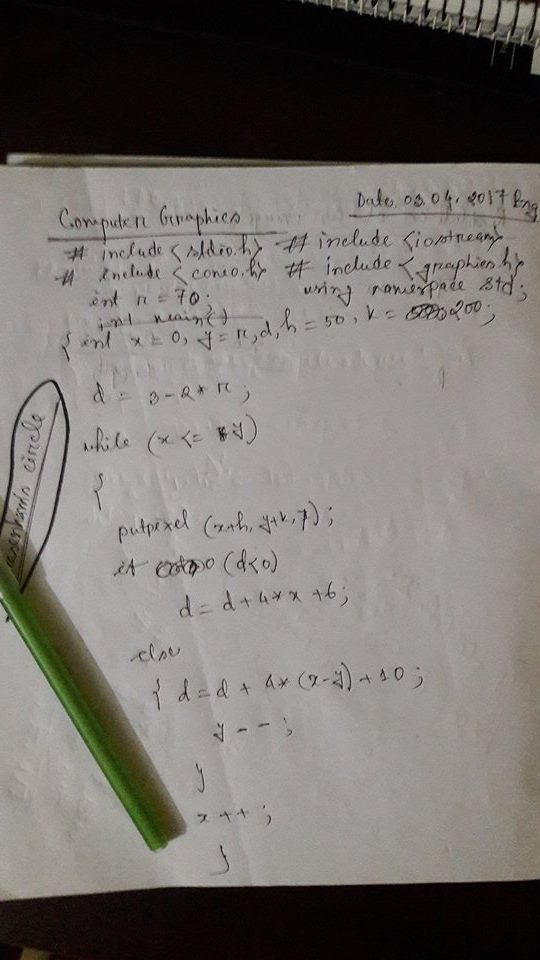 Computer Graphics
Date. 03.04.2017
# include <stdio.h> # include <iostream>
# include <conio.h> # include <graphics.h>
int r = 70; using namespace std;
int main()
{ int x = 0, y = r, d, h = 50, k = 200;
d = 3 - 2 * r;
while (x <= y)
{
putpixel (x+h, y+k, 7);
if (d<0)
d = d + 4 * x + 6;
else
{ d = d + 4 * (x-y) + 10;
y--;
}
x++;
}
circle